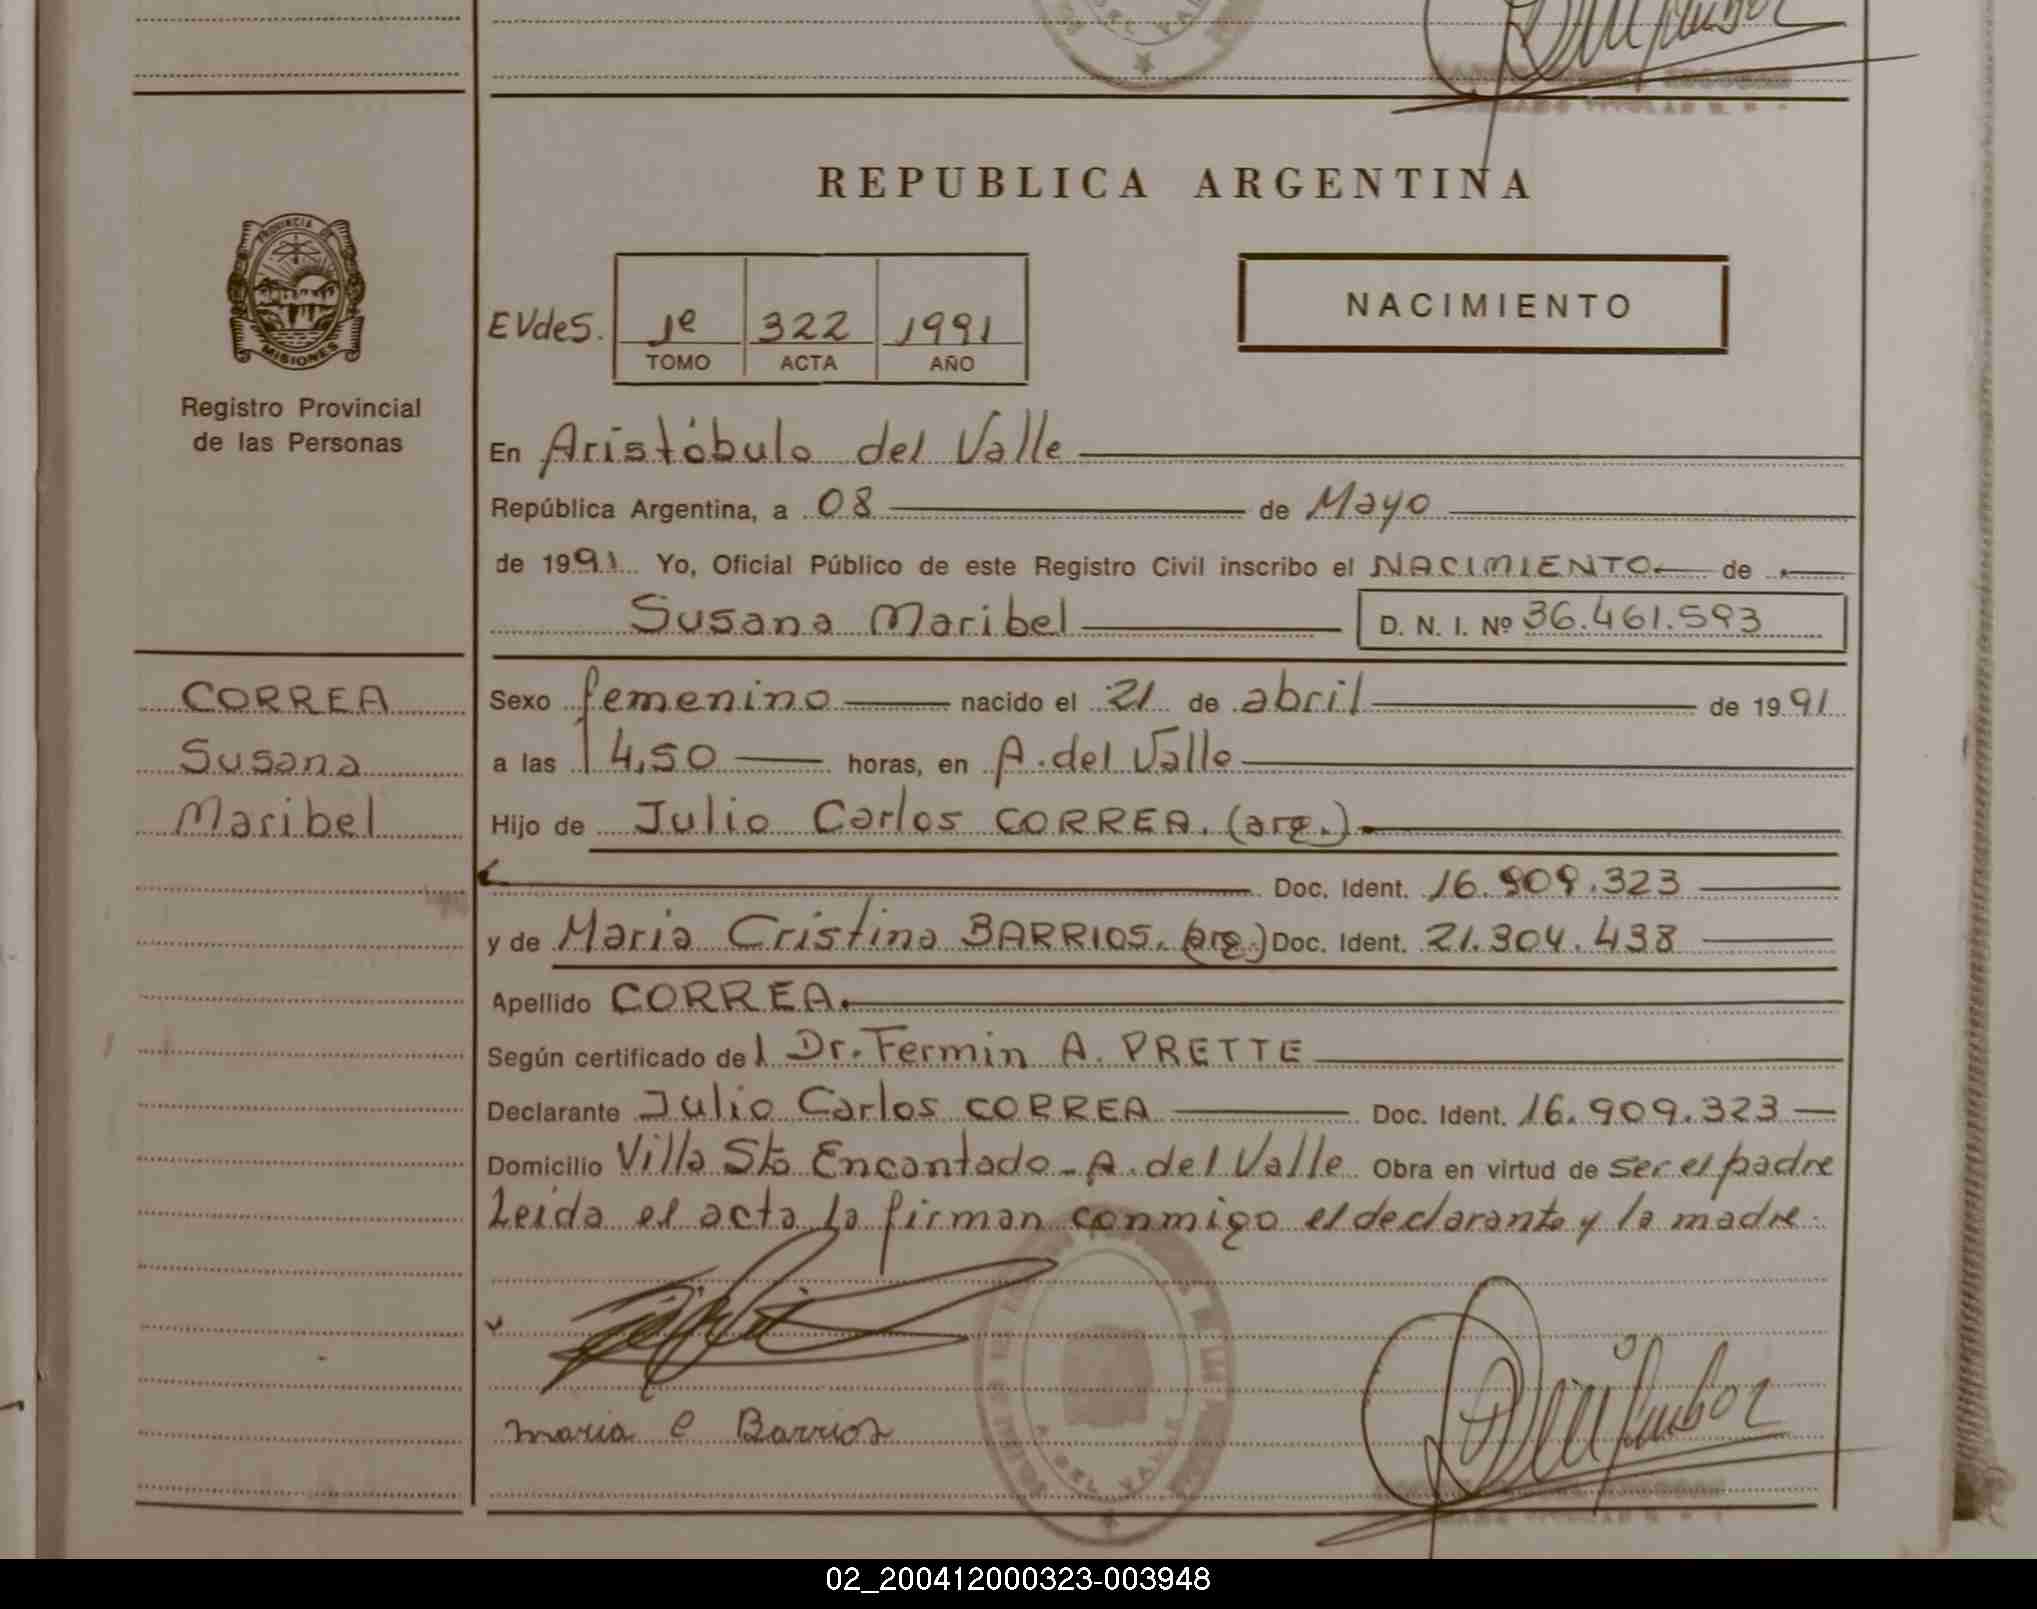 REPUBLICA ARGENTINA
PROVINCIA DE
MISIONES
Registro Provincial
de las Personas
NACIMIENTO
EVdeS. 1º 322 1991
TOMO ACTA AÑO
En Aristóbulo del Valle
República Argentina, a 08 de Mayo
de 1991 Yo, Oficial Público de este Registro Civil inscribo el NACIMIENTO de
Susana Maribel D. N. I. Nº 36.461.593
CORREA
Susana
Maribel
Sexo femenino nacido el 21 de abril de 1991
a las 14,50 horas, en A. del Valle
Hijo de Julio Carlos CORREA. (arg.)
Doc. Ident. 16.909.323
y de Maria Cristina BARRIOS. (arg.) Doc. Ident. 21.304.438
Apellido CORREA.
Según certificado del Dr. Fermin A. PRETTE
Declarante Julio Carlos CORREA Doc. Ident. 16.909.323
Domicilio Villa Sto Encantado - A. del Valle Obra en virtud de ser el padre
Leida el acta la firman conmigo el declarante y la madre.
maria C Barrios
A. DEL VALLE
02_200412000323-003948